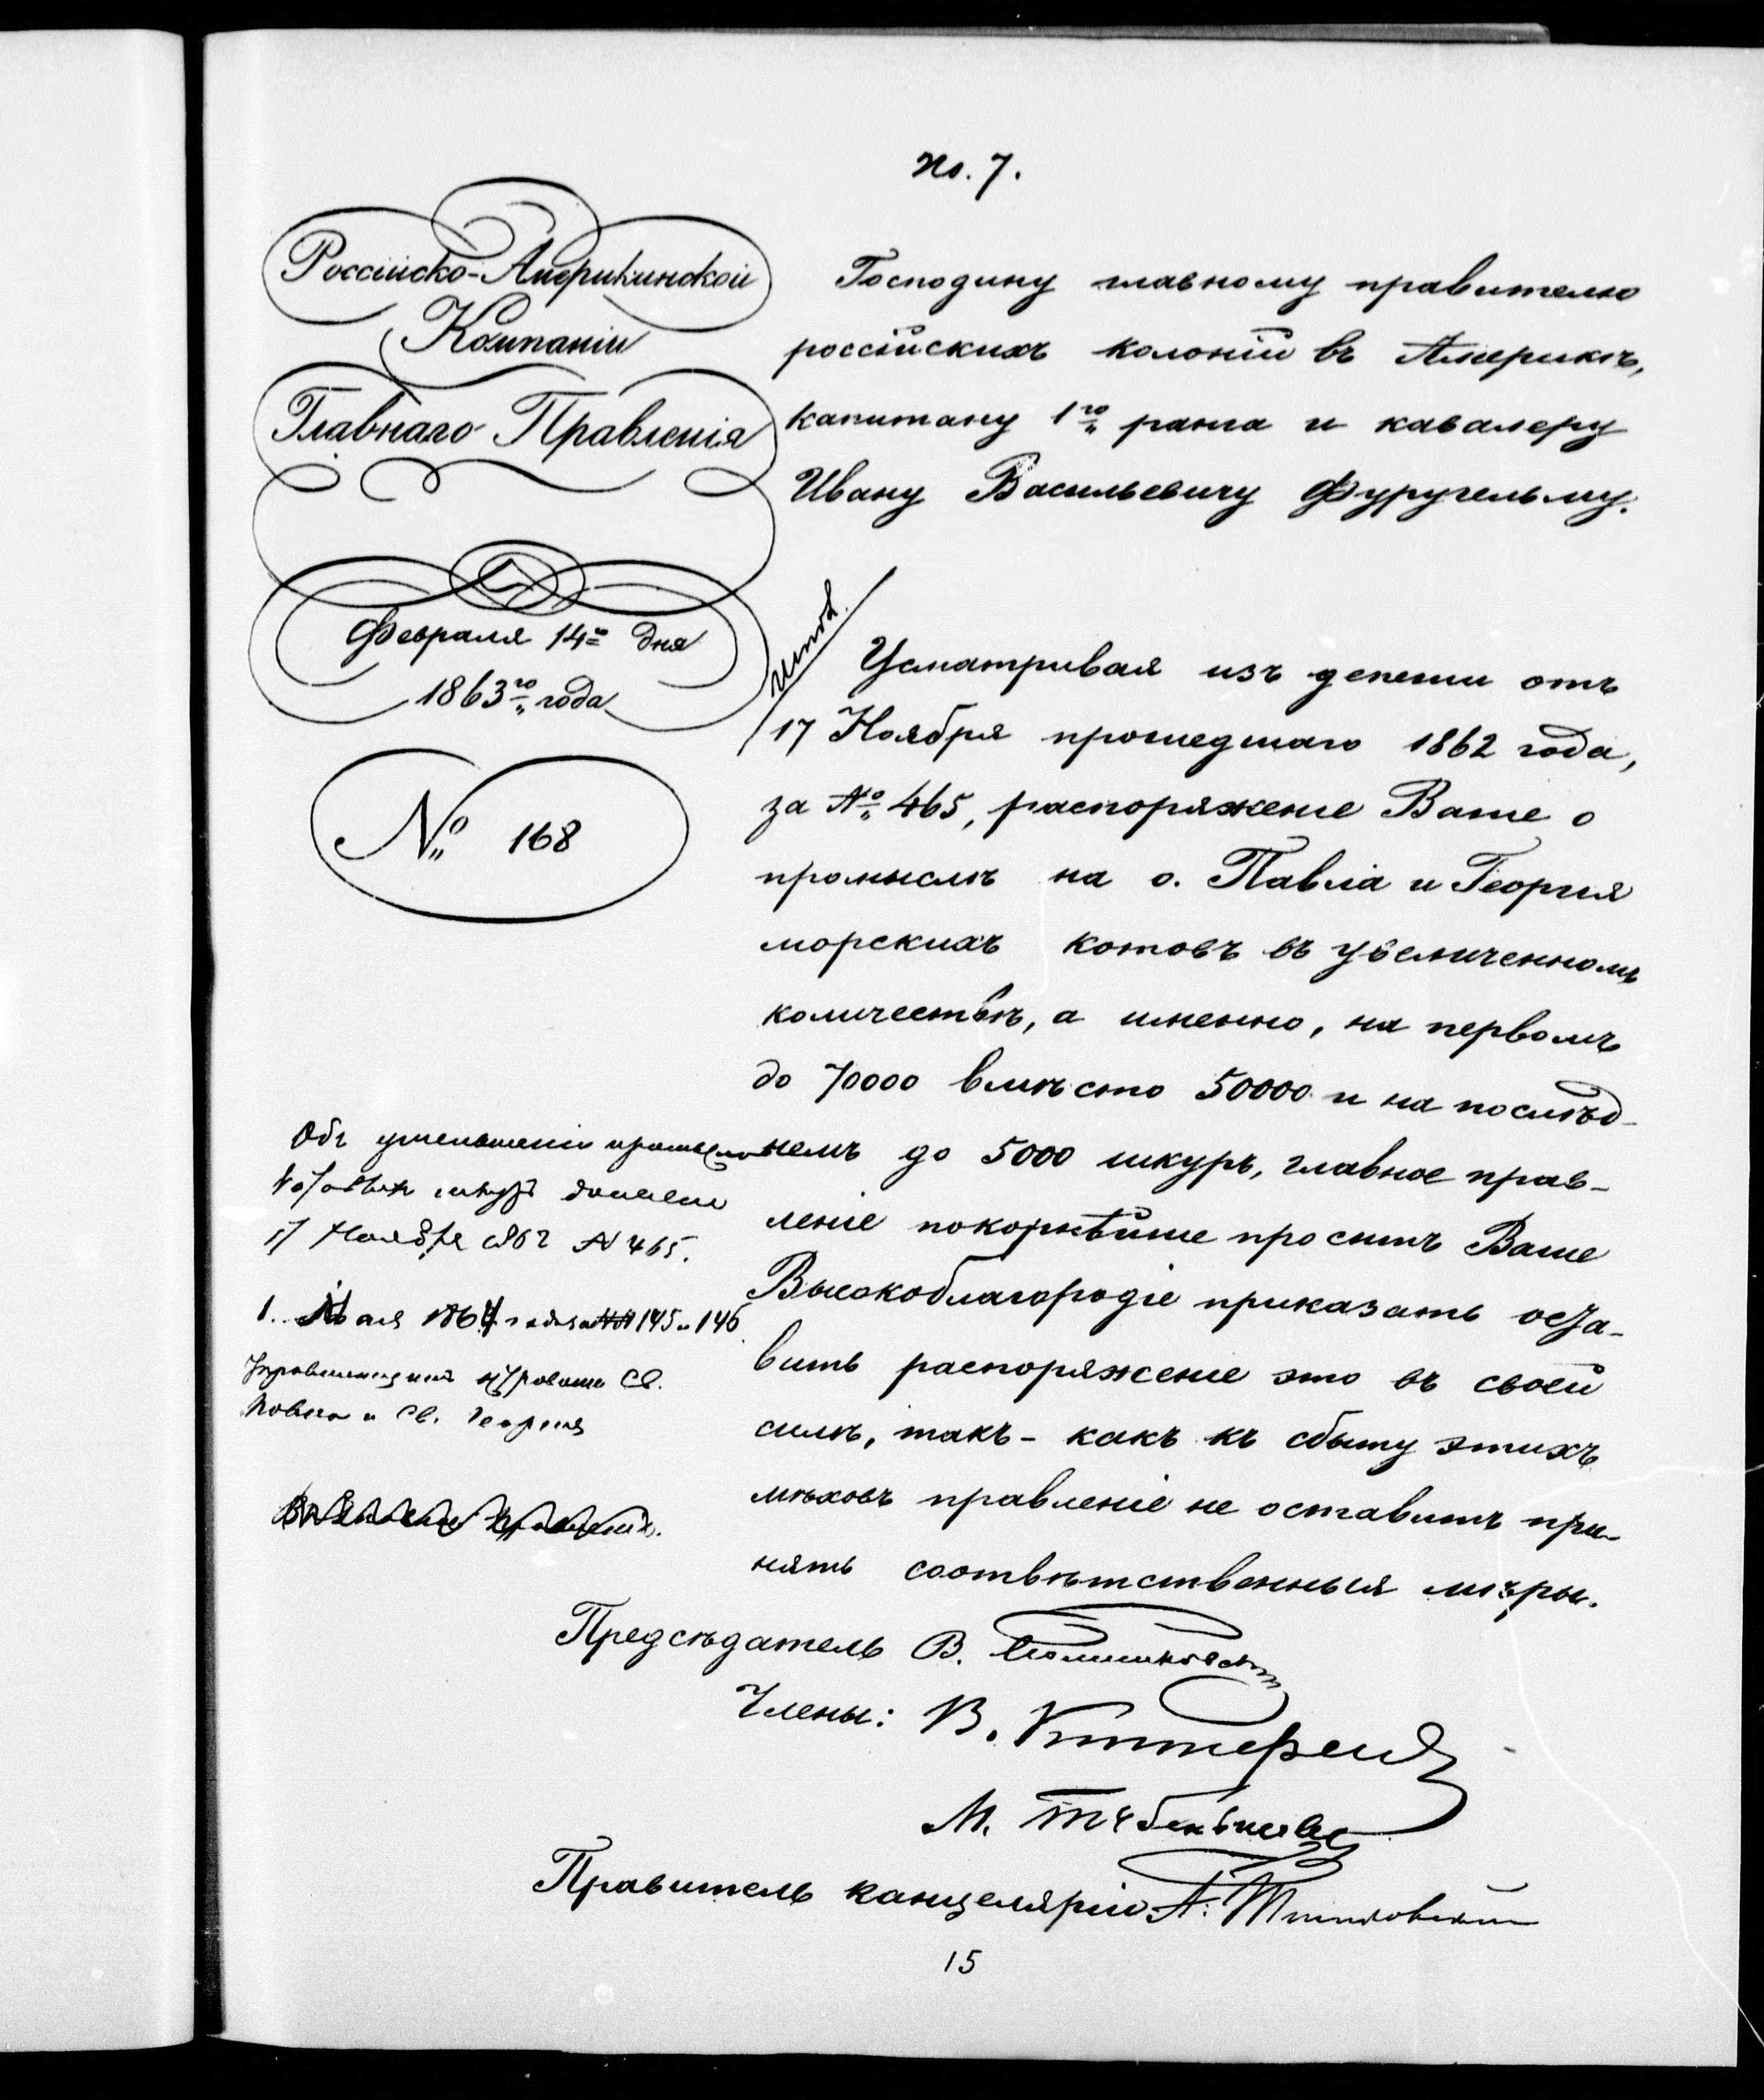 No. 7.
Россійско-Американской
Компаніи
Главнаго Правленія
Февраля 14го дня
1863го года
№ 168
Господину главному правителю
россійскихъ колоній въ Америкѣ,
капитану 1го ранга и кавалеру
Ивану Васильевичу Фуругельму.
Усматривая изъ депеши отъ
17 Ноября прошедшаго 1862 года,
за № 465, распоряженіе Ваше о
промыслѣ на о. Павла и Георгія
морскихъ котовъ въ увеличенномъ
количествѣ, а именно, на первомъ
до 70000 вмѣсто 50000 и на послѣд-
немъ до 5000 шкуръ, главное прав-
леніе покорнѣйше проситъ Ваше
Высокоблагородіе приказать оста-
вить распоряженіе это въ своей
силѣ, такъ-какъ къ сбыту этихъ
мѣховъ правленіе не оставитъ при-
нять соотвѣтственныя мѣры.
Объ уменьшеніи промысла
шкуръ
17 Ноября 1862 № 465.
1 Мая 1864 года за №№ 145 и 146
Управляющимъ островами Св.
Павла и Св. Георгія
Предсѣдатель В.
Члены: В. Этолинъ
М. Тебеньковъ
Правитель канцеляріи А. Тимковскій
15